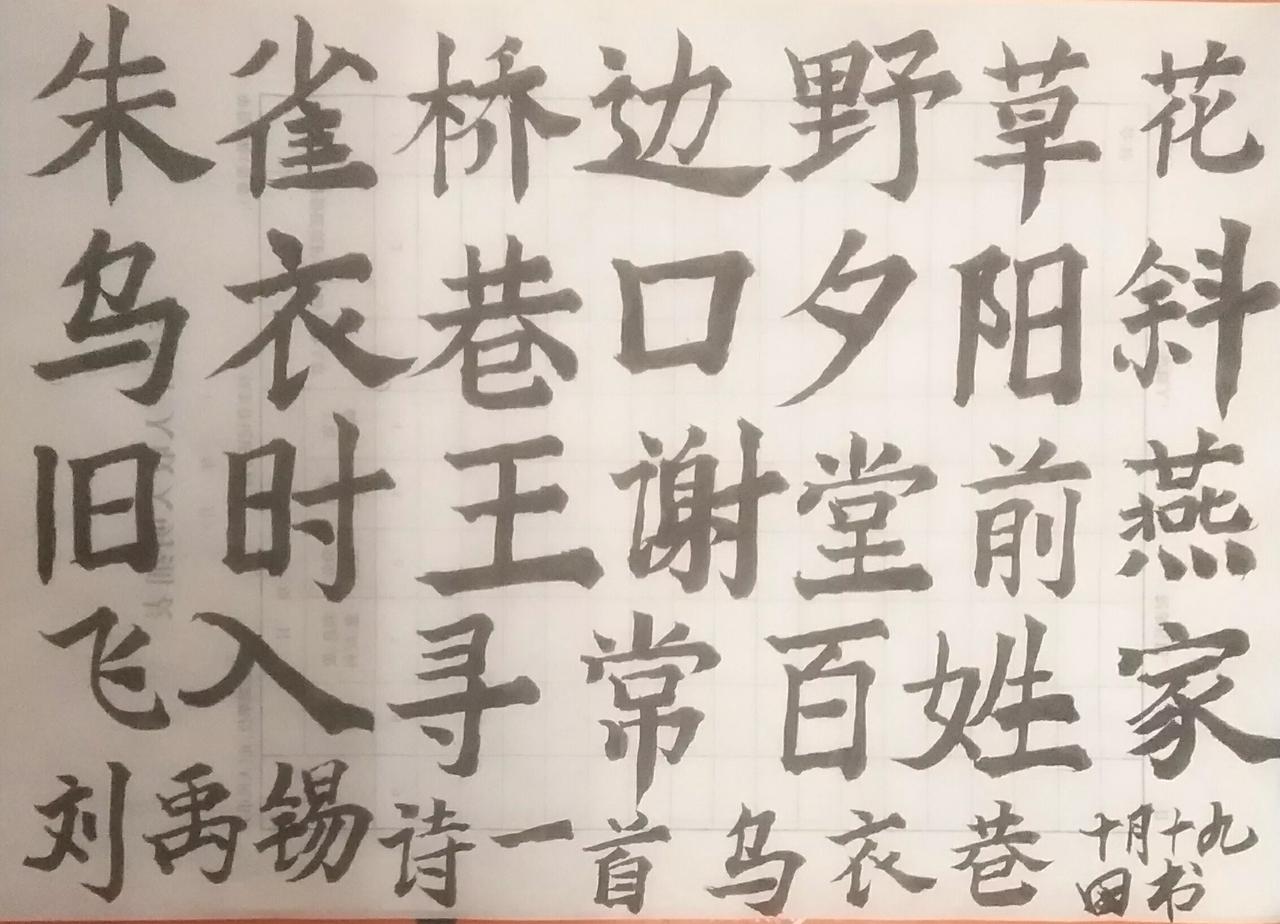 朱雀桥边野草花
乌衣巷口夕阳斜
旧时王谢堂前燕
飞入寻常百姓家
刘禹锡诗一首 乌衣巷 十月十九
书